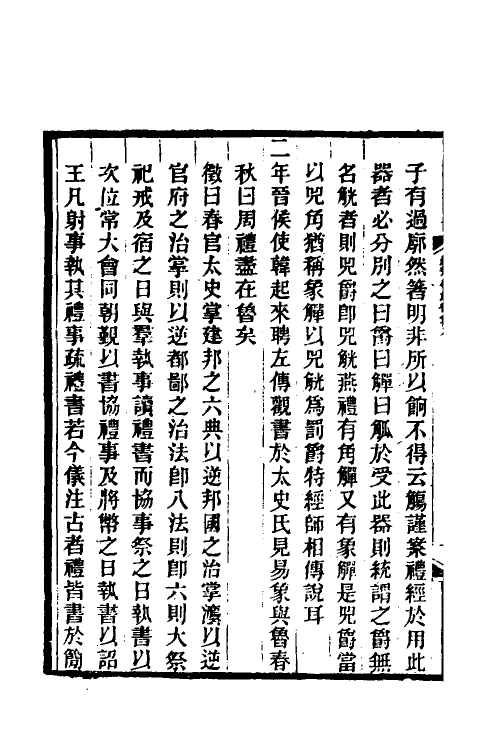 子有過廓然箸明非所以餉不得云觴謹案禮經於用此
器者必分別之曰爵曰觶曰觚於受此器則統謂之爵無
名觥者則兕爵卽兕觥燕禮有角觶又有象觶是兕爵當
以兕角猶稱象觶以兕觥爲罰爵特經師相傳說耳
二年晉侯使韓起來聘左傳觀書於太史氏見易象與魯春
秋曰周禮盡在魯矣
徵曰春官太史掌建邦之六典以逆邦國之治掌灋以逆
官府之治掌則以逆都鄙之治法卽八法則卽六則大祭
祀戒及宿之日與羣執事讀禮書而協事祭之日執書以
次位常大會同朝覲以書協禮事及將幣之日執書以詔
王凡射事執其禮事疏禮書若今儀注古者禮皆書於簡